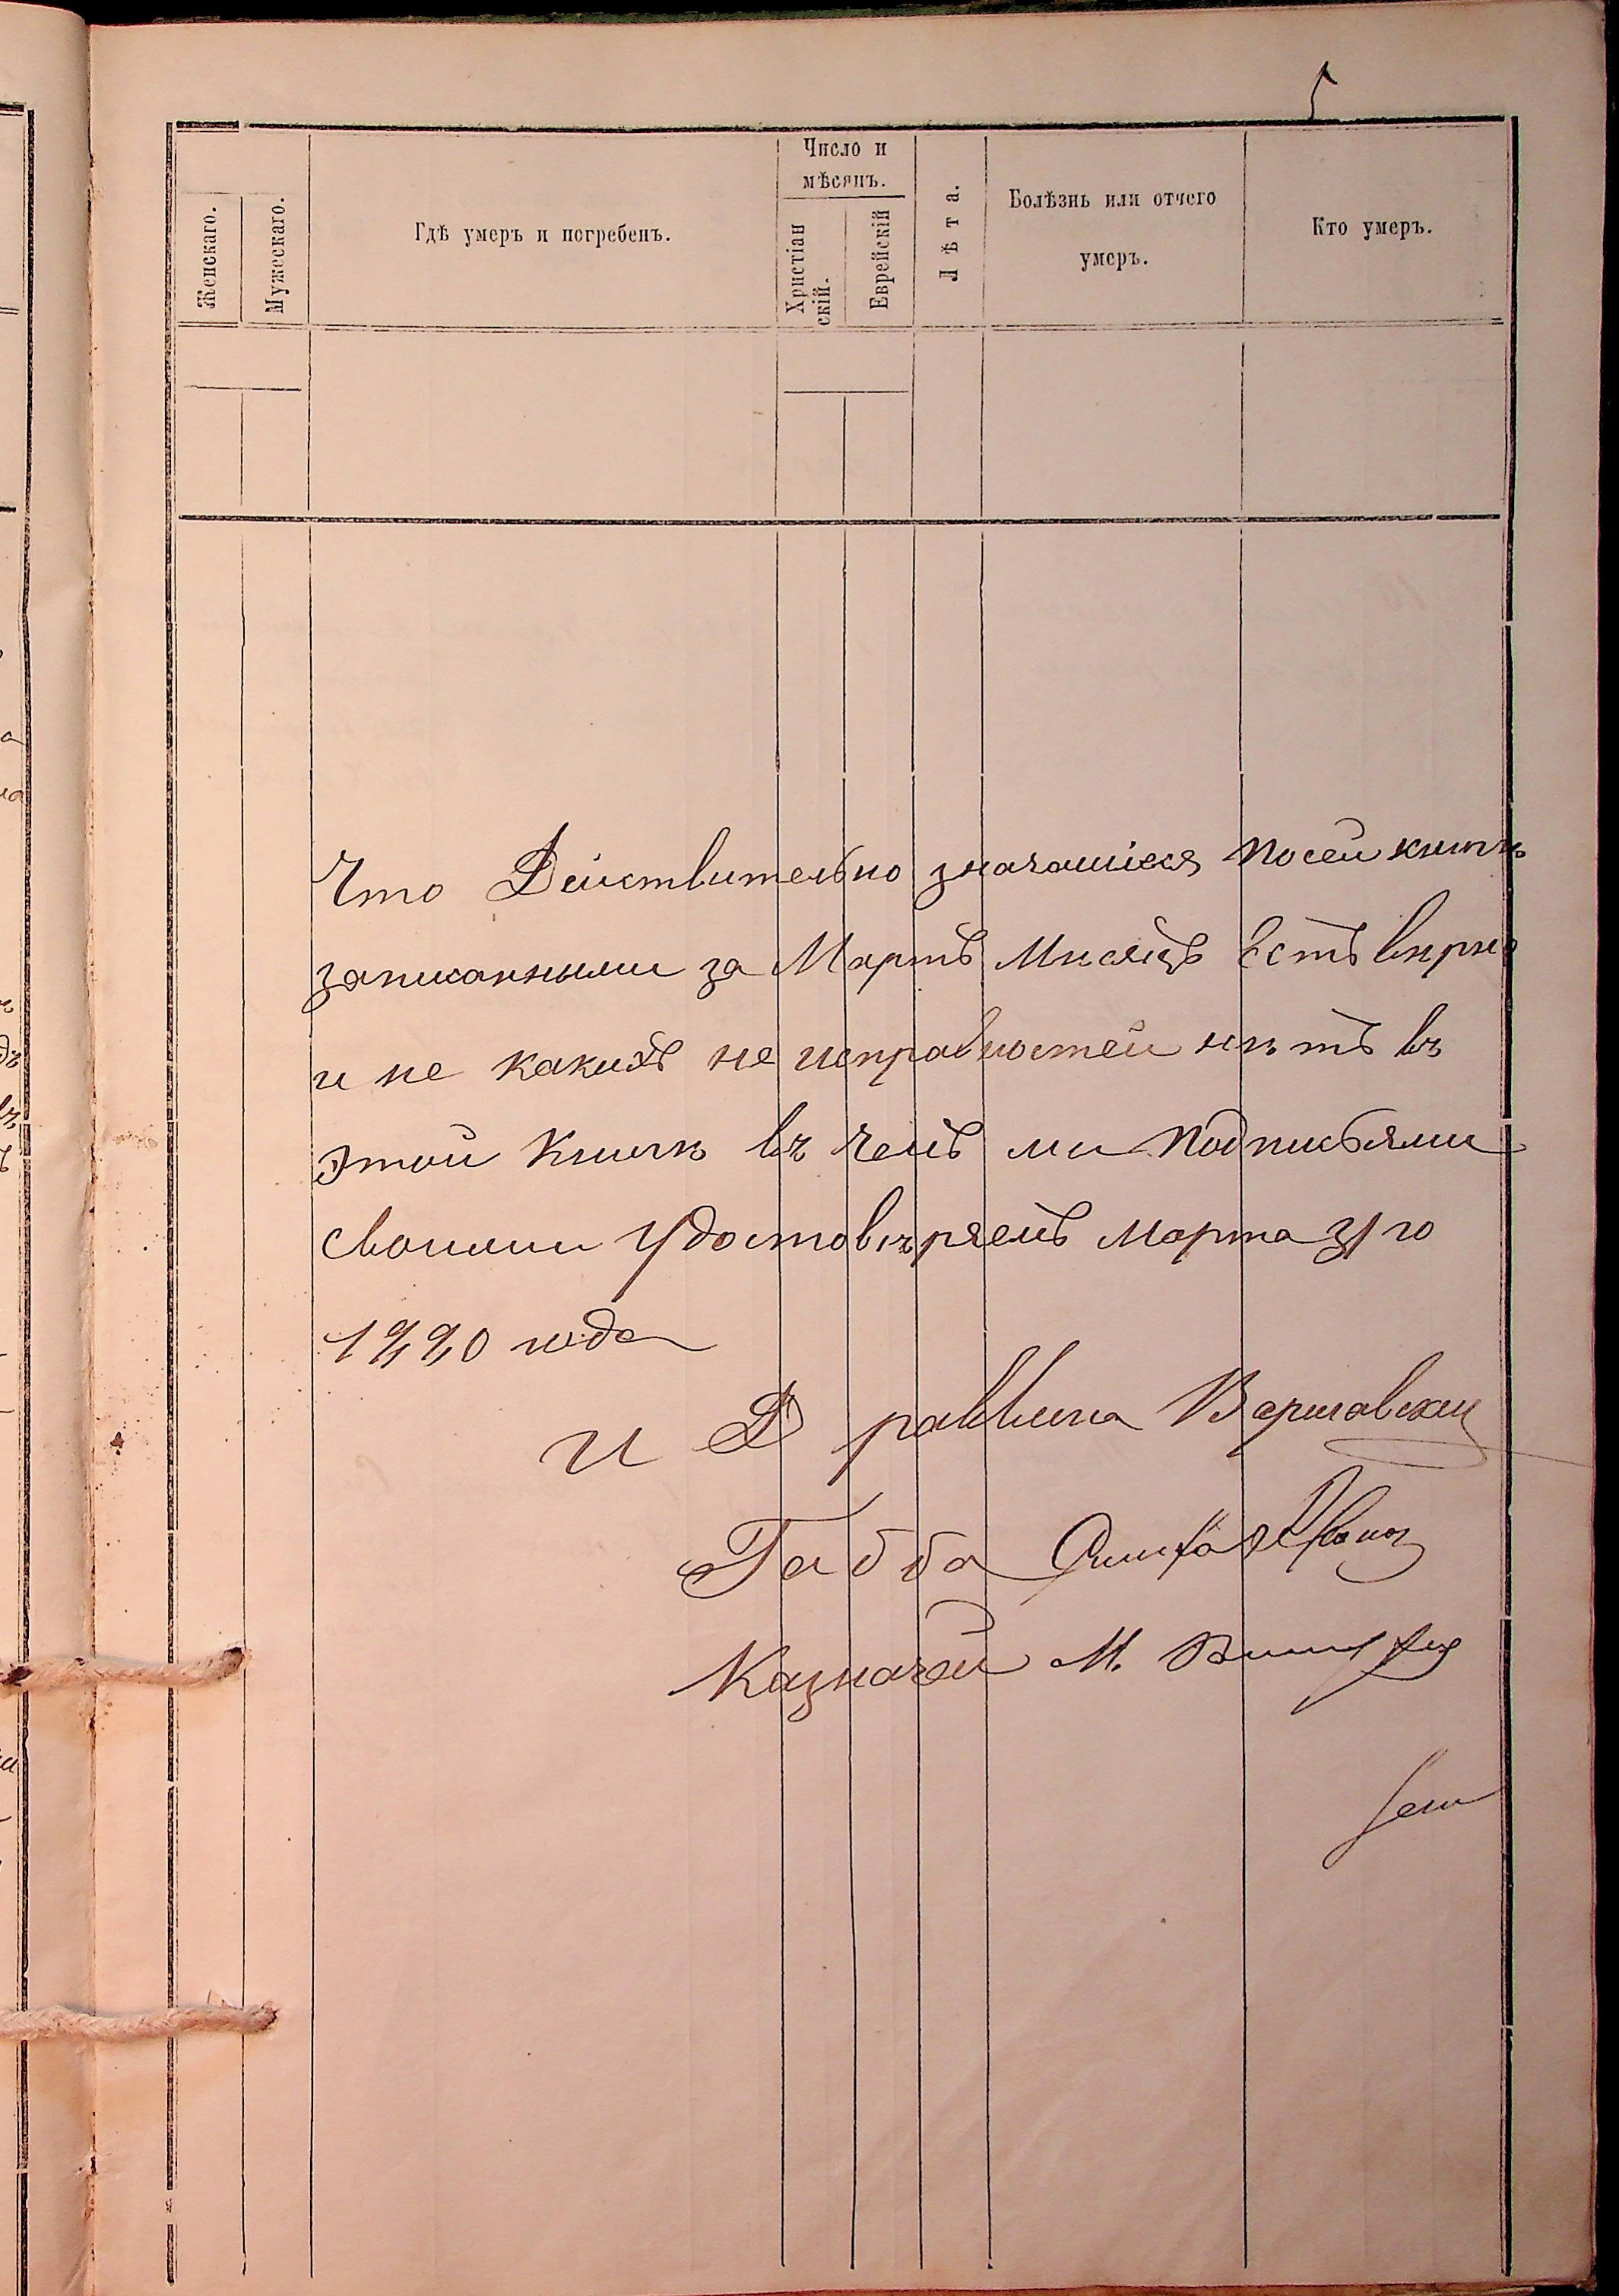 5
Число и
мѣсяцъ.
Женскаго.
Мужескаго.
Гдѣ умеръ и погребенъ.
Христіан
скій.
Еврейскій
Лѣта.
Болѣзнь или отчего
умеръ.
Кто умеръ.
Что Дѣйствительно значащіеся посей книгѣ
записанными за Мартъ Мѣсяцъ Естъ вѣрно
и не какихъ не исправностей нѣтъ въ
этой Книгѣ въ чемъ ми подписями
своими Удостовѣряемъ марта 31го
1890 года
И Д раввина Варшавскій
Габба
Казначей М.